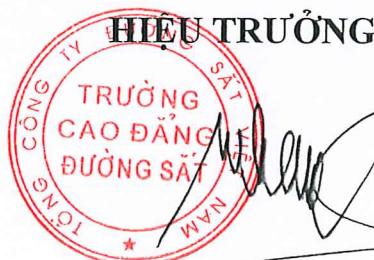 HIỆU TRƯỞNG
TỔNG CÔNG TY ĐƯỜNG SẮT VIỆT NAM
TRƯỜNG
CAO ĐẲNG
ĐƯỜNG SẮT